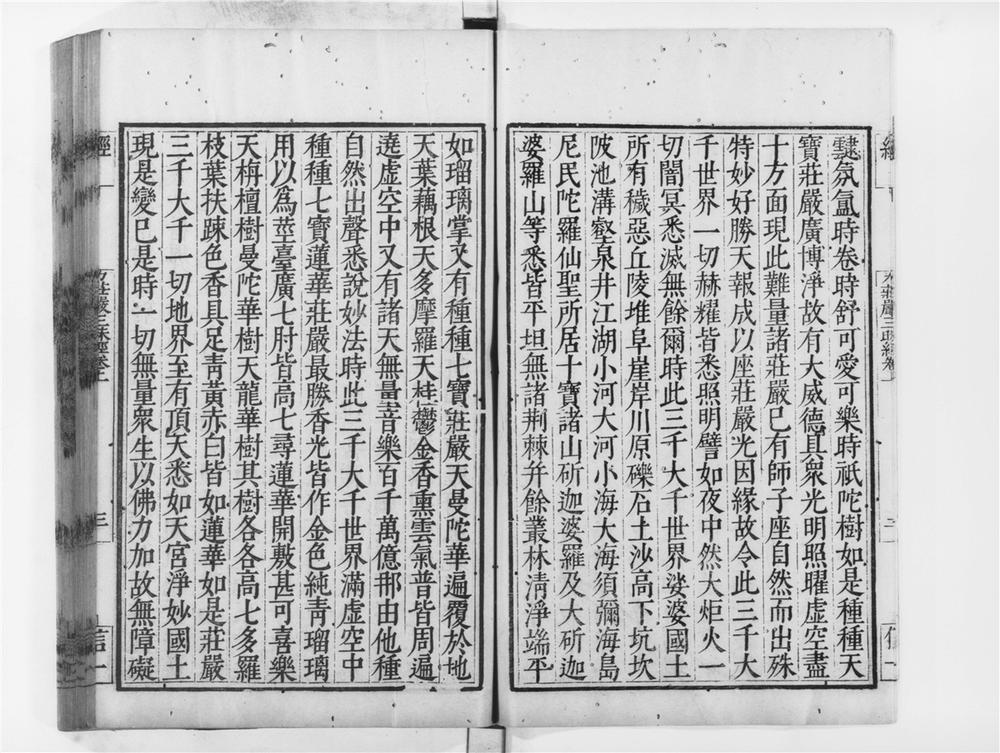 靆氛氳時卷時舒可愛可樂時祇陀樹如是種種天
寶莊嚴廣博淨故有大威德具衆光明照曜虛空盡
十方面現此難量諸莊嚴已有師子座自然而出殊
特妙好勝天報成以座莊嚴光因緣故令此三千大
千世界一切赫耀皆悉照明譬如夜中然大炬火一
切闇冥悉滅無餘爾時此三千大千世界娑婆國土
所有穢惡丘陵堆阜崖岸川原礫石土沙高下坑坎
陂池溝壑泉井江湖小河大河小海大海須彌海島
尼民陀羅仙聖所居十寶諸山斫迦婆羅及大斫迦
婆羅山等悉皆平坦無諸荆棘并餘叢林淸淨端平
如瑠璃掌又有種種七寶莊嚴天曼陀華遍覆於地
天葉藕根天多摩羅天桂鬱金香熏雲氣普皆周遍
遶虛空中又有諸天無量音樂百千萬億那由他種
自然出聲悉說妙法時此三千大千世界滿虛空中
種種七寶蓮華莊嚴最勝香光皆作金色純靑瑠璃
用以爲莖臺廣七肘皆高七尋蓮華開敷甚可喜樂
天栴檀樹曼陀華樹天龍華樹其樹各各高七多羅
枝葉扶踈色香具足靑黃赤白皆如蓮華如是莊嚴
三千大千一切地界至有頂天悉如天宮淨妙國土
現是變已是時一切無量衆生以佛力加故無障礙
經
莊嚴三昧經卷上
三
信一